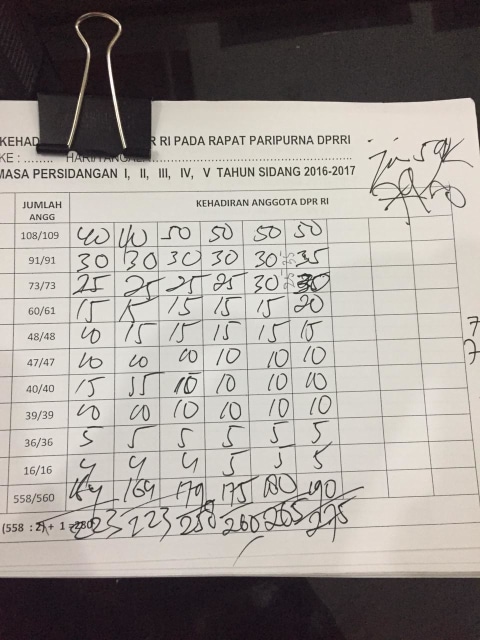 KEHAD R RI PADA RAPAT PARIPURNA DPRRI
KE : ........ HARI/
MASA PERSIDANGAN I, II, III, IV, V TAHUN SIDANG 2016-2017
JUMLAH ANGG KEHADIRAN ANGGOTA DPR RI
108/109 40 40 50 50 50 50
91/91 30 30 30 30 30 35
73/73 25 25 25 25 30 30
60/61 15 15 15 15 15 20
48/48 10 15 15 15 15 15
47/47 10 10 10 10 10 10
40/40 15 15 10 10 10 10
39/39 10 10 10 10 10 10
36/36 5 5 5 5 5 5
16/16 4 4 4 5 5 5
558/560 164 169 179 175 180 190
(558 : 2) + 1 =280 223 223 260 265 275